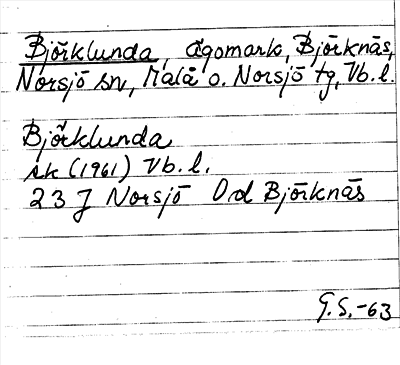 Björklunda, ägomark, Björknäs,
Norsjö sn, Malå o. Norsjö tg, Vb. l.
Björklunda
sk (1961) Vb. l.
23 J Norsjö Od Björknäs
G.S.-63